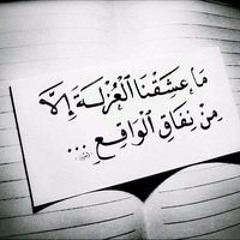 مَا عَشِقْنَا الْعُزْلَةَ إِلَّا
مِنْ نِفَاقِ الْوَاقِعِ...